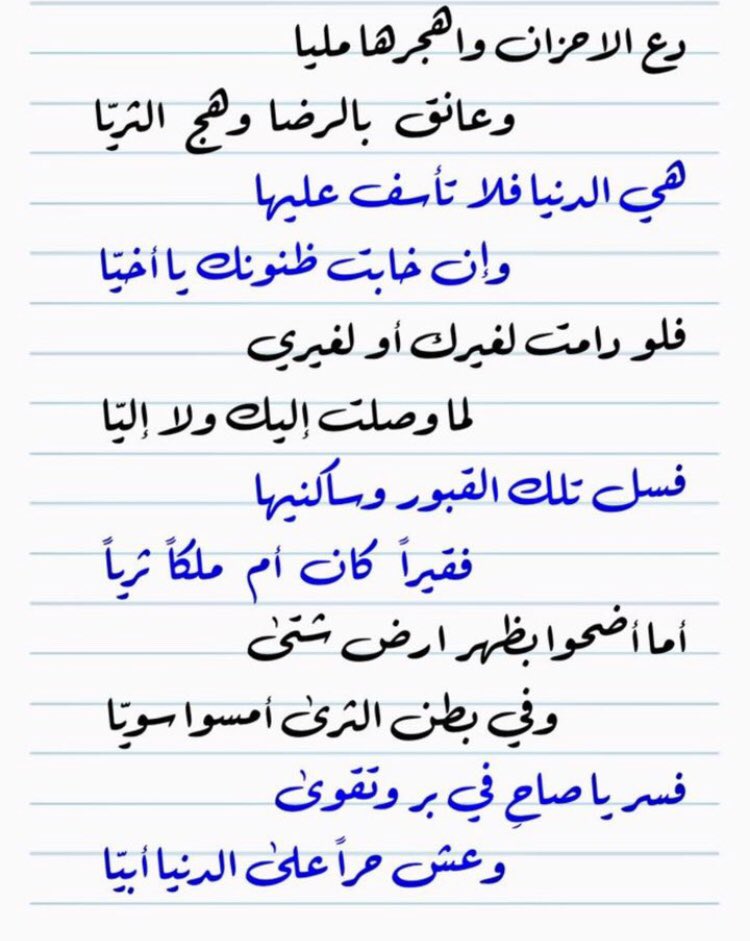 دع الاحزان واهجرها مليا
وعانق بالرضا وهج الثريّا
هي الدنيا فلا تأسف عليها
وإن خابت ظنونك يا أخيّا
فلو دامت لغيرك أو لغيري
لما وصلت إليك ولا إليّا
فسل تلك القبور وساكنيها
فقيراً كان أم ملكاً ثرياً
أما أضحوا بظهر ارض شتىٰ
وفي بطن الثرىٰ أمسوا سويّا
فسر يا صاحِ في بر وتقوىٰ
وعش حراً علىٰ الدنيا أبيّا